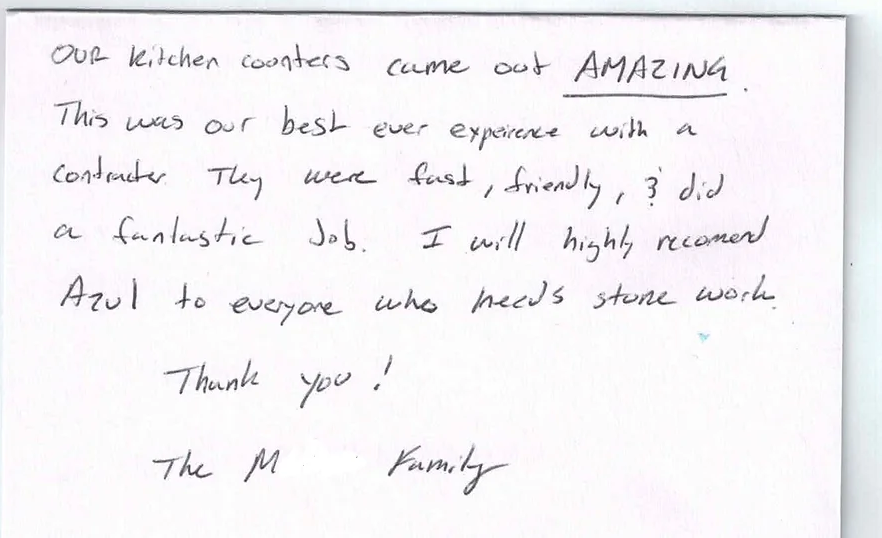 OUR kitchen counters came out AMAZING.
This was our best ever expeirence with a
contracter. They were fast, friendly, & did
a fantastic Job. I will highly recomend
Azul to everyone who needs stone work.
Thank you!
The M Family